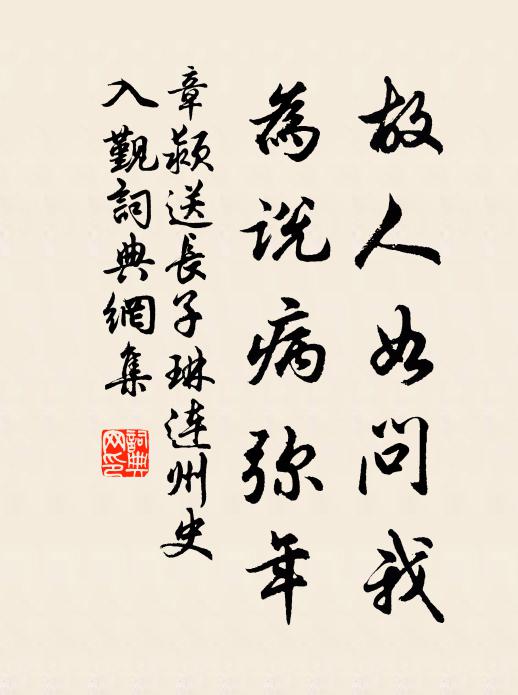 故人如问我
為说病弥年
章颍送長子琳连州史
入觐詞典網集
詞典網印